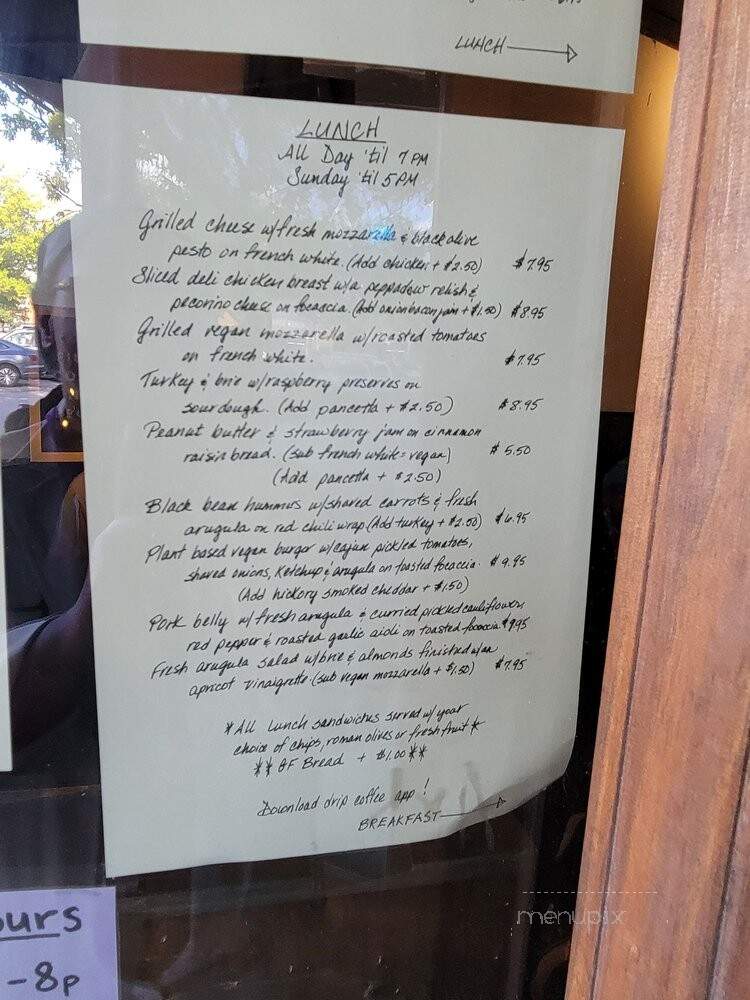 LUNCH
LUNCH
All Day 'til 7 PM
Sunday 'til 5PM
Grilled cheese w/fresh mozzarella & black olive
pesto on french white. (Add chicken + $2.50) $7.95
Sliced deli chicken breast w/a peppadew relish &
pecorino cheese on focaccia. (Add onion bacon jam + $1.50) $8.95
Grilled vegan mozzarella w/roasted tomatoes
on french white. $7.95
Turkey & brie w/raspberry preserves on
sourdough. (Add pancetta + $2.50) $8.95
Peanut butter & strawberry jam on cinnamon
raisin bread. (sub french white = vegan) $5.50
(Add pancetta + $2.50)
Black bean hummus w/shaved carrots & fresh
arugula on red chili wrap (Add turkey + $2.50) $6.95
Plant based vegan burger w/cajun pickled tomatoes,
shaved onions, ketchup & arugula on toasted focaccia. $9.95
(Add hickory smoked cheddar + $1.50)
Pork belly w/fresh arugula & curried pickled cauliflower,
red pepper & roasted garlic aioli on toasted focaccia $9.95
Fresh arugula salad w/brie & almonds finished w/an
apricot vinaigrette. (sub vegan mozzarella + $1.50) $7.95
*All lunch sandwiches served w/ your
choice of chips, roman olives or fresh fruit*
** GF Bread + $1.00 **
Download drip coffee app!
BREAKFAST
ours
-8p
menupix